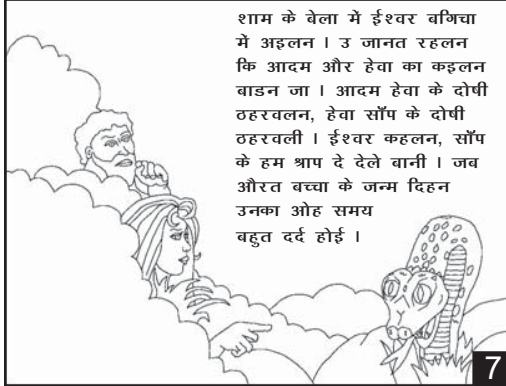 शाम के बेला में ईश्वर बगिचा
में अइलन । उ जानत रहलन
कि आदम और हेवा का कइलन
बाडन जा । आदम हेवा के दोषी
ठहरवलन, हेवा साँप के दोषी
ठहरवली । ईश्वर कहलन, साँप
के हम श्राप दे देले बानी । जब
औरत बच्चा के जन्म दिहन
उनका ओह समय
बहुत दर्द होई ।
7